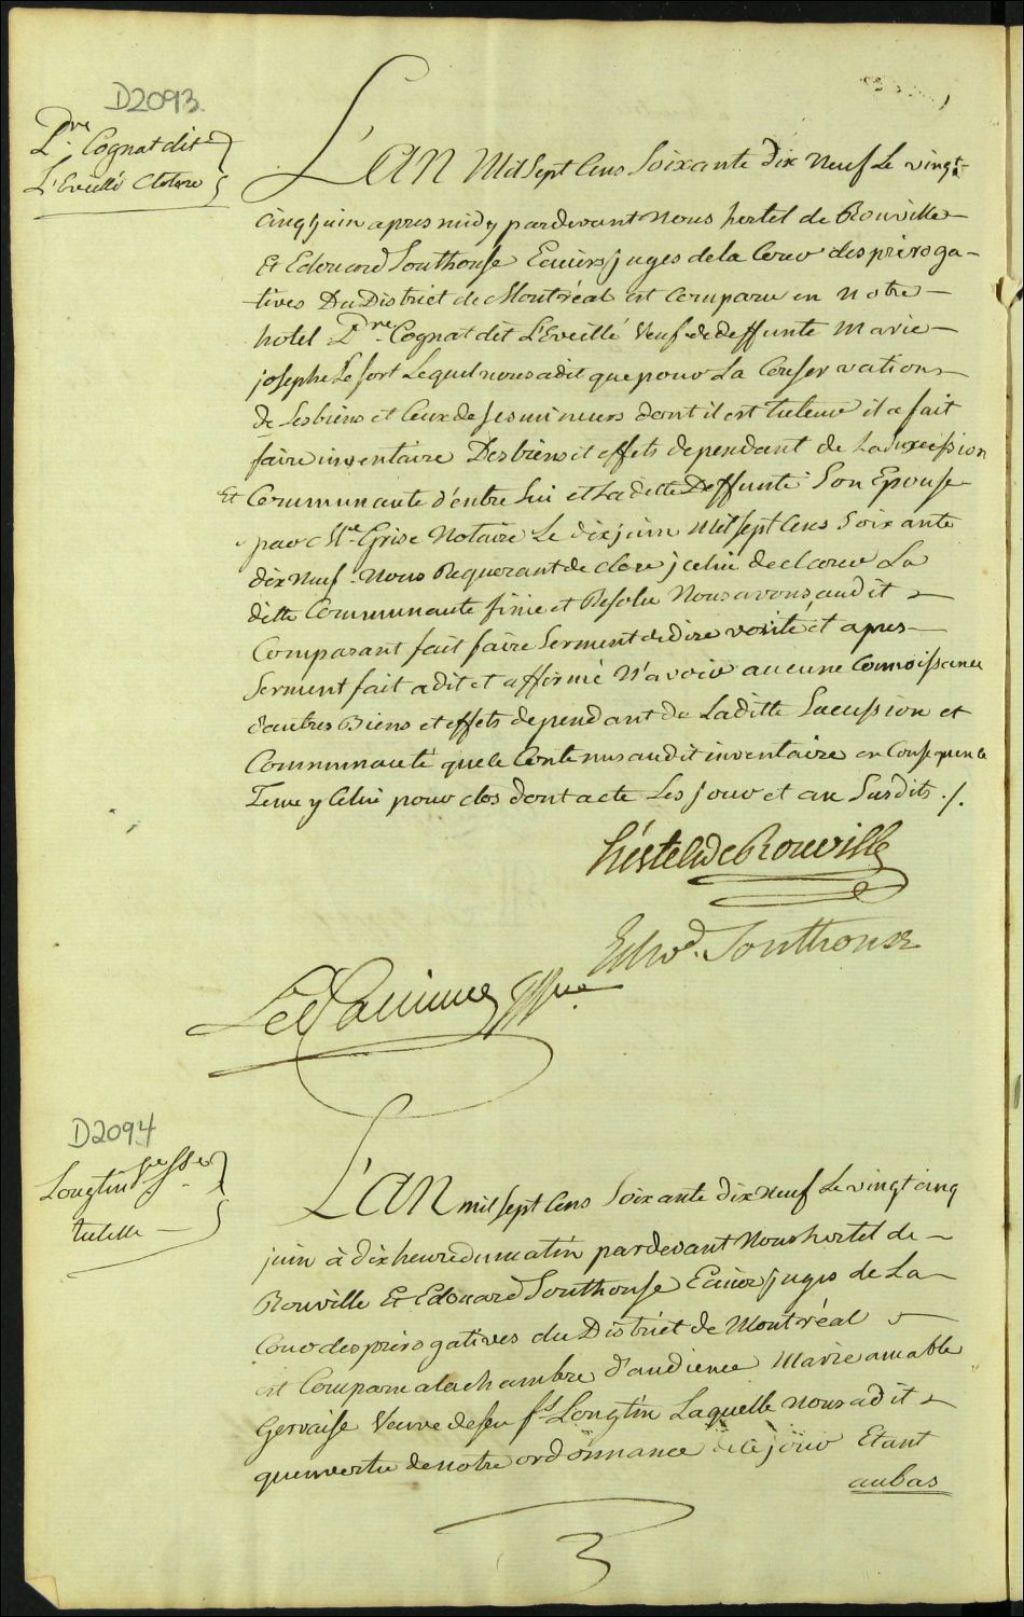 D2093.
Pre. Cognat dit
L'Eveillé Cloture
L'AN Mil Sept Cens Soixante dix Neuf Le vingt-
cinq juin apres midy pardevant Nous hertel de Rouville
Et Edouard Southouse Ecuiers juges de la Cour des preroga-
tives Du District de Montréal est Comparu en Notre
hotel Pre. Cognat dit L'Eveillé Veuf de deffunte Marie
josephe Le fort Lequel nous a dit que pour La Conservations
de Ses biens et Ceux de Ses mineurs dont il est tuteur il a fait
faire inventaire Des biens et effets dependant de La Succession
Et Communauté d'entre Lui et La ditte Deffunte Son Epouse
par Me. Grisé Notaire Le dix juin Mil Sept Cens Soixante
dix Neuf. Nous Requerant de clore jcelui declarer La
ditte Communauté finie et Resolu Nous avons audit
Comparant fait faire Serment de dire verité et apres
Serment fait a dit et affirmé N'avoir aucune Connoissance
d'autres Biens et effets dependant de Laditte Sucession et
Communauté que le Contenus audit inventaire en Consequence
Tenu y Celui pour clos dont acte Les jour et an Susdits ./.
hertel de Rouville
Edwd. Southouse
D2094
Longtin
tutelle
L'AN mil Sept Cens Soixante dix Neuf Le vingt cinq
juin à dix heure du matin pardevant Nous hertel de
Rouville Et Edouard Southouse Ecuier juges de La
Cour des prerogatives du District de Montréal
est Comparu a la chambre d'audience Marie amable
Gervaise Veuve de feu fs. Longtin Laquelle nous a dit
qu'en vertu de notre ordonnance de Ce jour Etant
au bas